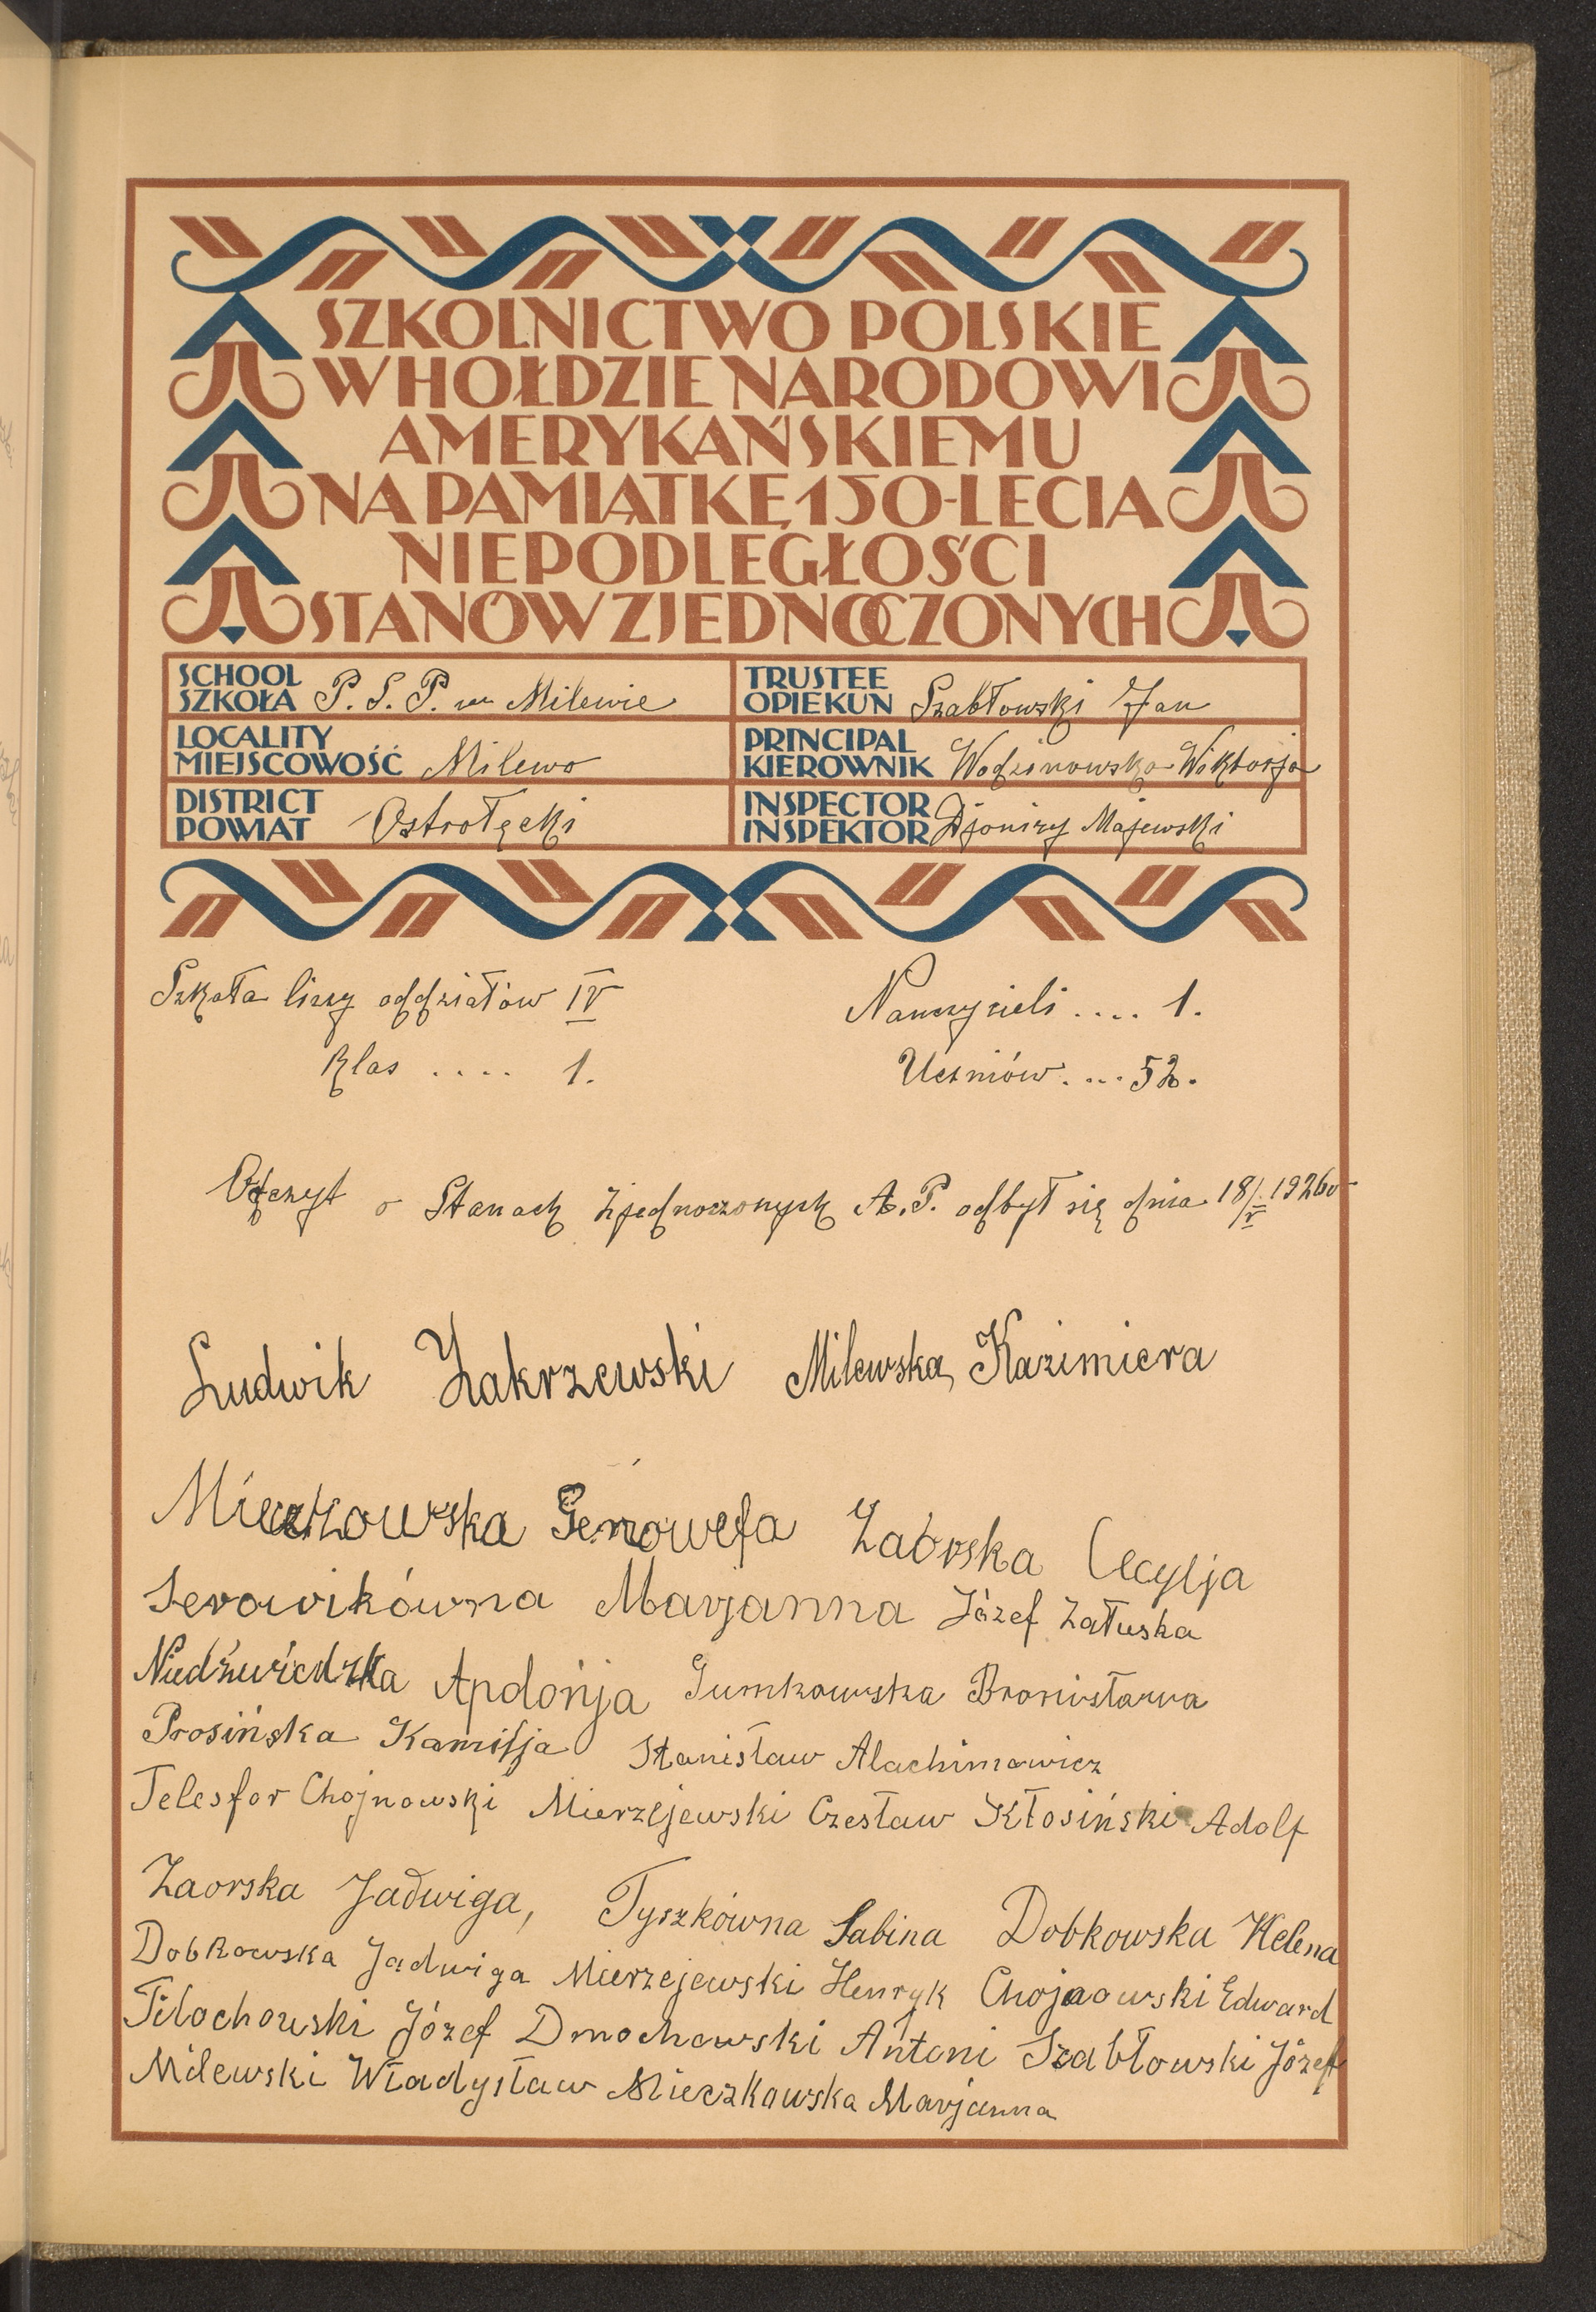 SZKOLNICTWO POLSKIE
W HOŁDZIE NARODOWI
AMERYKAŃSKIEMU
NA PAMIĄTKĘ 150-LECIA
NIEPODLEGŁOŚCI
STANÓW ZJEDNOCZONYCH
SCHOOL
SZKOŁA P. S. P. w Milewie
TRUSTEE
OPIEKUN Szabłowski Jan
LOCALITY
MIEJSCOWOŚĆ Milewo
PRINCIPAL
KIEROWNIK Wodzinowska Wiktorja
DISTRICT
POWIAT Ostrołęcki
INSPECTOR
INSPEKTOR Djonizy Majewski
Szkoła liczy oddziałów IV
Nauczycieli .... 1.
Klas .... 1.
Uczniów .... 52.
Odczyt o Stanach Zjednoczonych A. P. odbył się dnia 18/V 1926 r
Ludwik Zakrzewski Milewska Kazimiera
Mieczkowska Genowefa Zaorska Cecylja
Serowikówna Marjanna Józef Załuska
Niedźwiedzka Apolonja Gumkowska Bronisława
Prosińska Kamilja Stanisław Alachimowicz
Telesfor Chojnowski Mierzejewski Czesław Kłosiński Adolf
Zaorska Jadwiga, Tyszkówna Sabina Dobkowska Helena
Dobkowska Jadwiga Mierzejewski Henryk Chojnowski Edward
Filochowski Józef Dmochowski Antoni Szabłowski Józef
Milewski Władysław Mieczkowska Marjanna